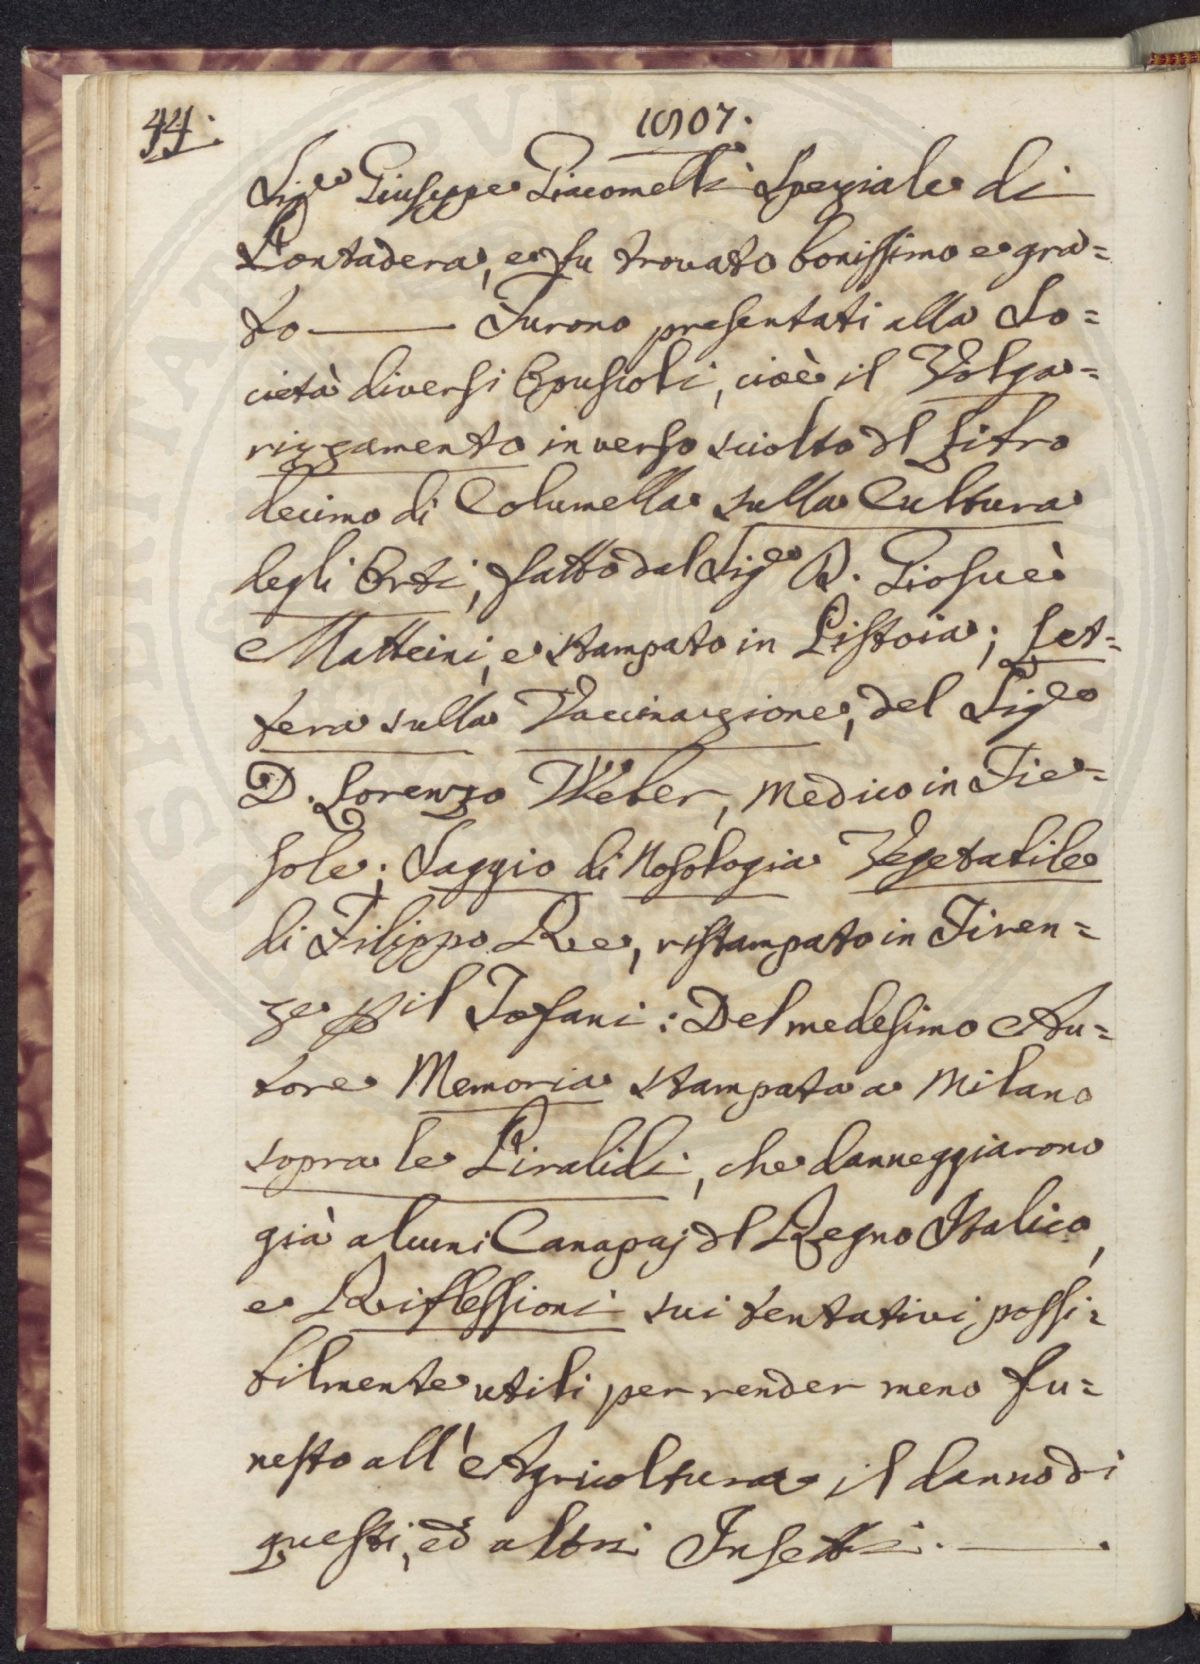 44.
1807.
Sig.re Giuseppe Giacomelli Speziale di
Pontadera, e fu trovato bonissimo e gra=
to ——— Furono presentati alla So=
cietà diversi Opuscoli, cioè il Volga=
rizzamento in verso sciolto dl Libro
decimo di Columella sulla Cultura
degli Orti, fatto dal Sig.re D. Giosuè
Matteini, e stampato in Pistoia; Let=
tera sulla Vaccinazione, del Sig.re
D. Lorenzo Weber, Medico in Fie=
sole; Saggio di Nosologia Vegetabile
di Filippo Re, ristampato in Firen=
ze p il Tofani: Del medesimo Au=
tore Memoria stampata a Milano
sopra le Piralidi, che danneggiarono
già alcuni Canapaj dl Regno Italico,
e Riflessioni sui tentativi possi=
bilmente utili per render meno fu=
nesto all'Agricoltura il danno di
questi, ed altri Insetti. ———.